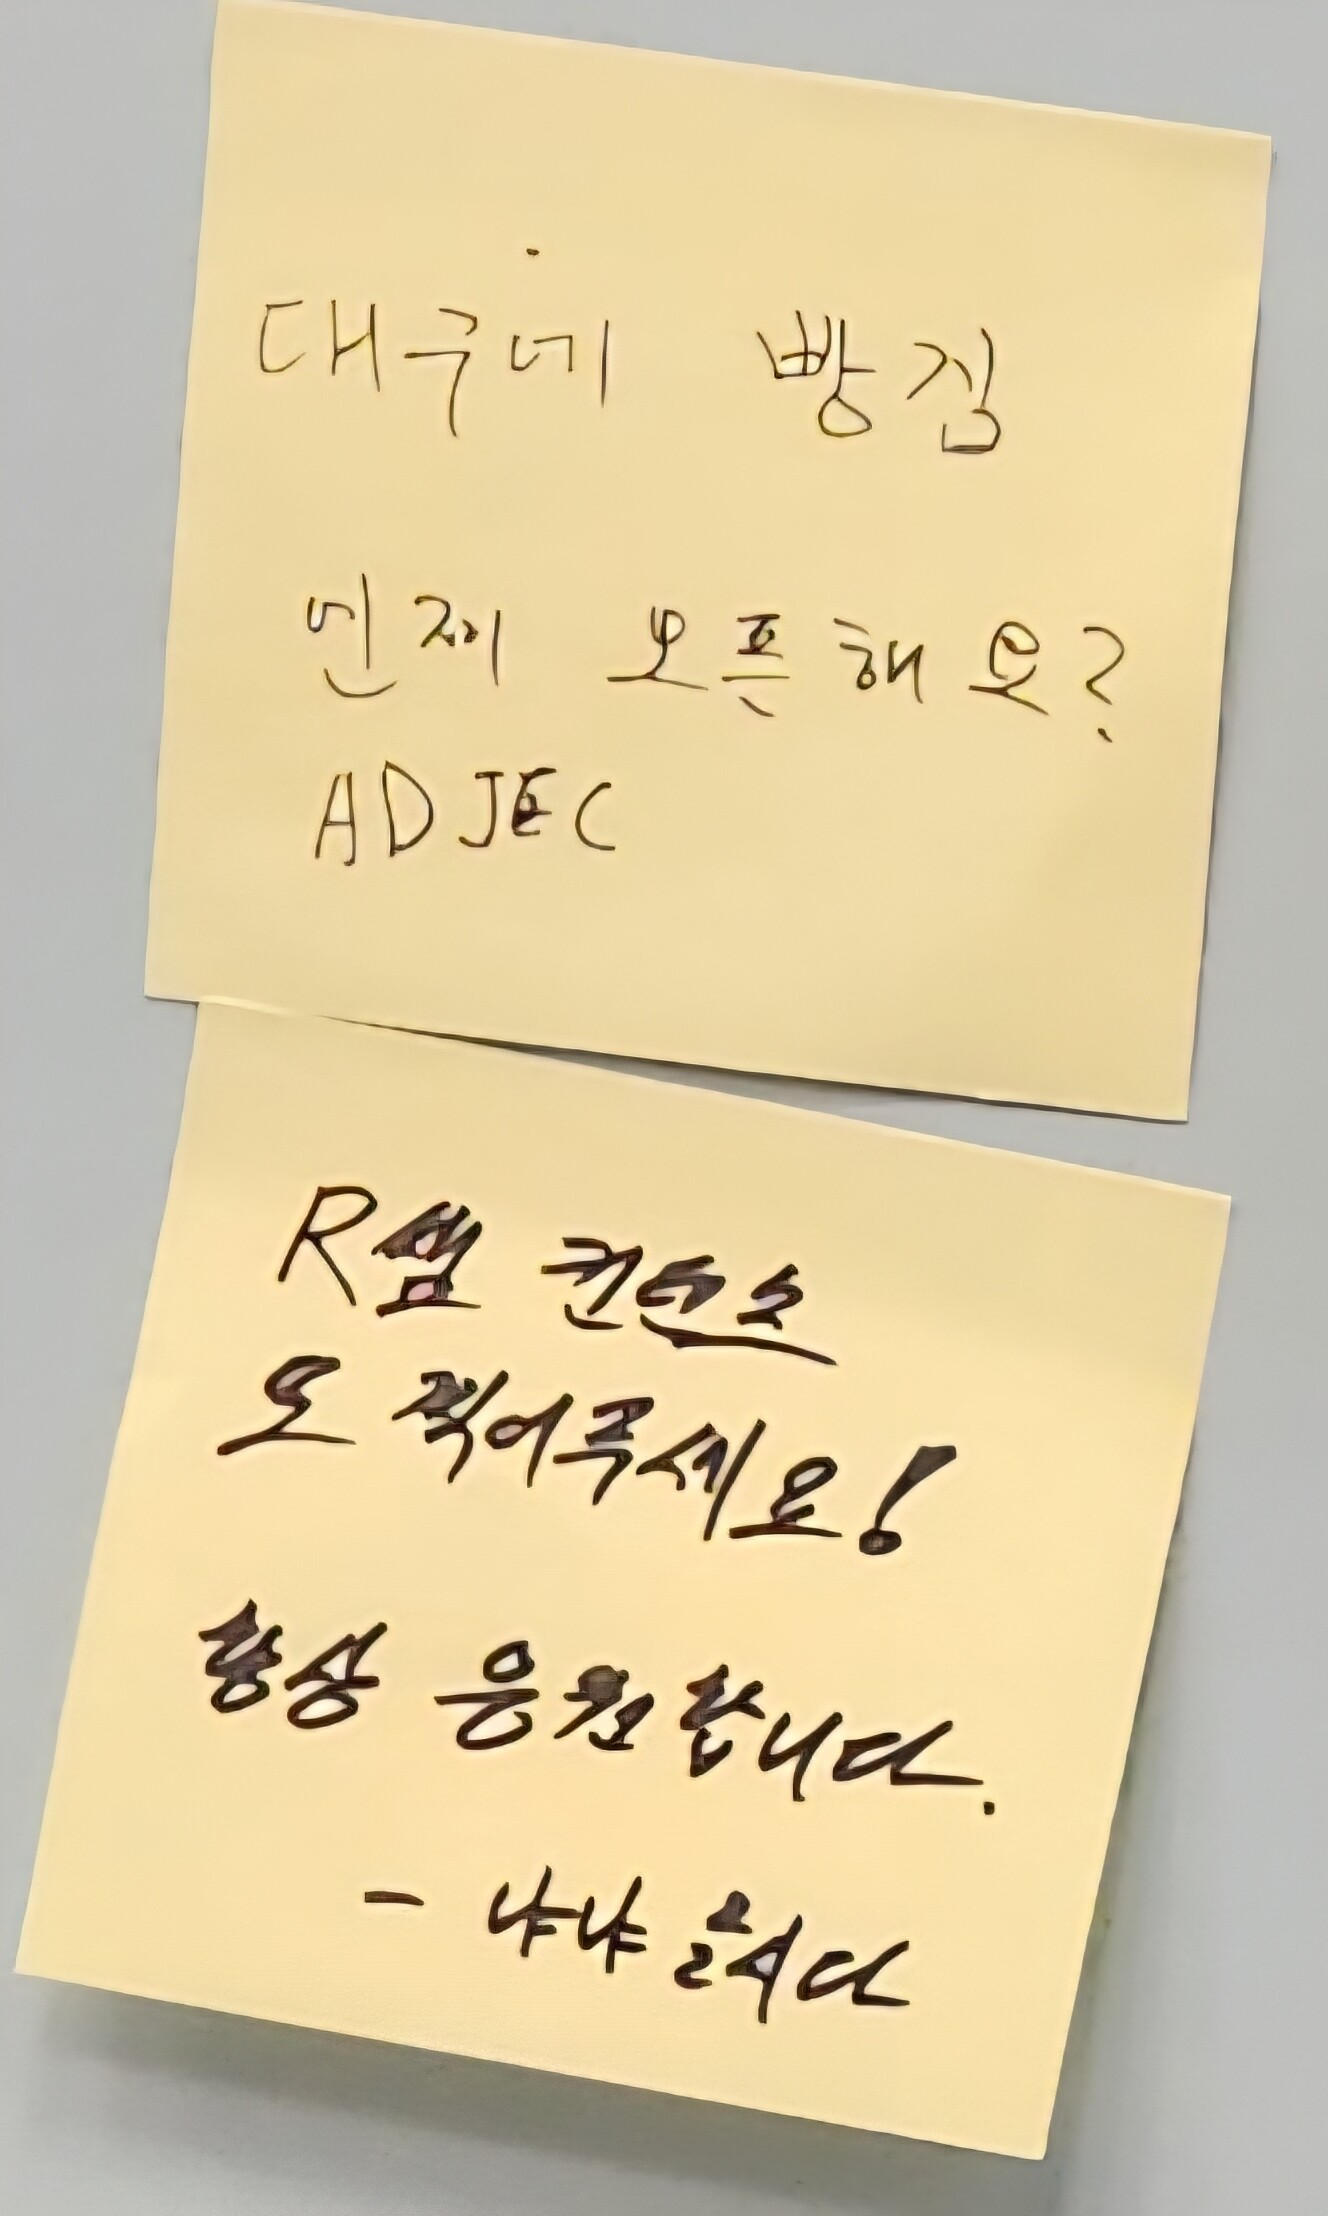 대구에 빵집
언제 오픈해요?
ADJEC
R쌤 컨텐츠
도 찍어주세요!
항상 응원합니다.
- 냐냐